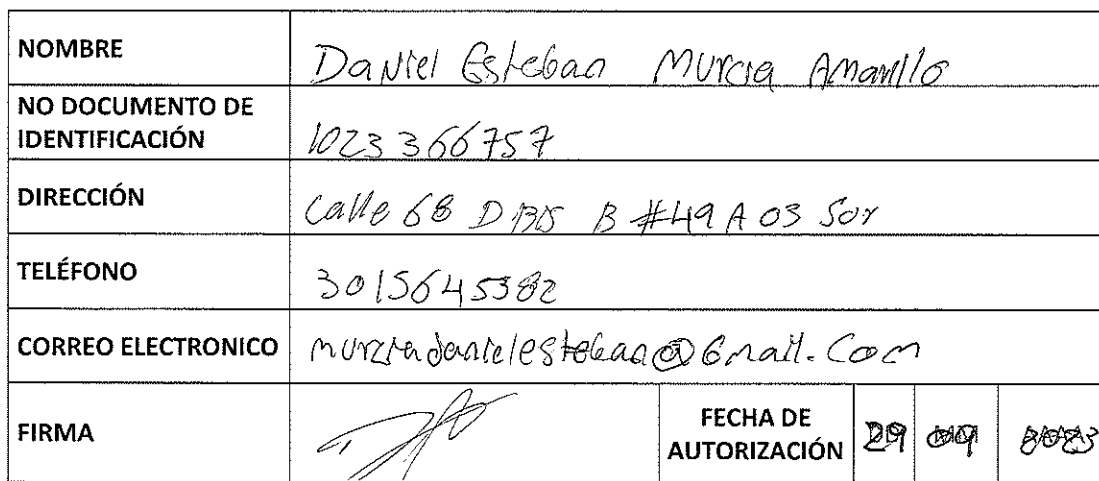 NOMBRE Daniel Esteban Murcia Amarillo
NO DOCUMENTO DE
IDENTIFICACIÓN 1023366757
DIRECCIÓN Calle 68 D BIS B #49 A 03 Sur
TELÉFONO 3015645382
CORREO ELECTRONICO murciadanielesteban@Gmail.Com
FIRMA FECHA DE
AUTORIZACIÓN 29 09